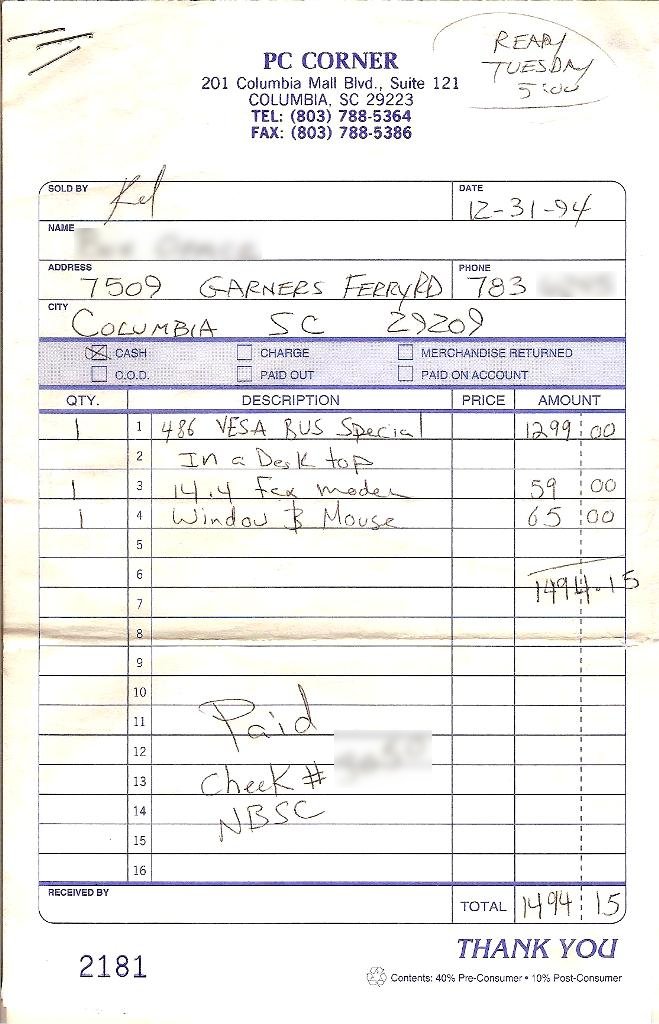 READY
TUESDAY
5:00
PC CORNER
201 Columbia Mall Blvd., Suite 121
COLUMBIA, SC 29223
TEL: (803) 788-5364
FAX: (803) 788-5386
SOLD BY
DATE 12-31-94
NAME
ADDRESS 7509 GARNERS FERRY RD PHONE 783
CITY COLUMBIA SC 29209
CASH CHARGE MERCHANDISE RETURNED
C.O.D. PAID OUT PAID ON ACCOUNT
QTY. DESCRIPTION PRICE AMOUNT
1 1 486 VESA BUS Special 1299 00
2 In a Desktop
1 3 14.4 Fax modem 59 00
1 4 Window & Mouse 65 00
5
6
1494.15
7
8
9
10
11 Paid
12
13 Check #
14 NBSC
15
16
RECEIVED BY TOTAL 1494 15
2181 THANK YOU
Contents: 40% Pre-Consumer • 10% Post-Consumer